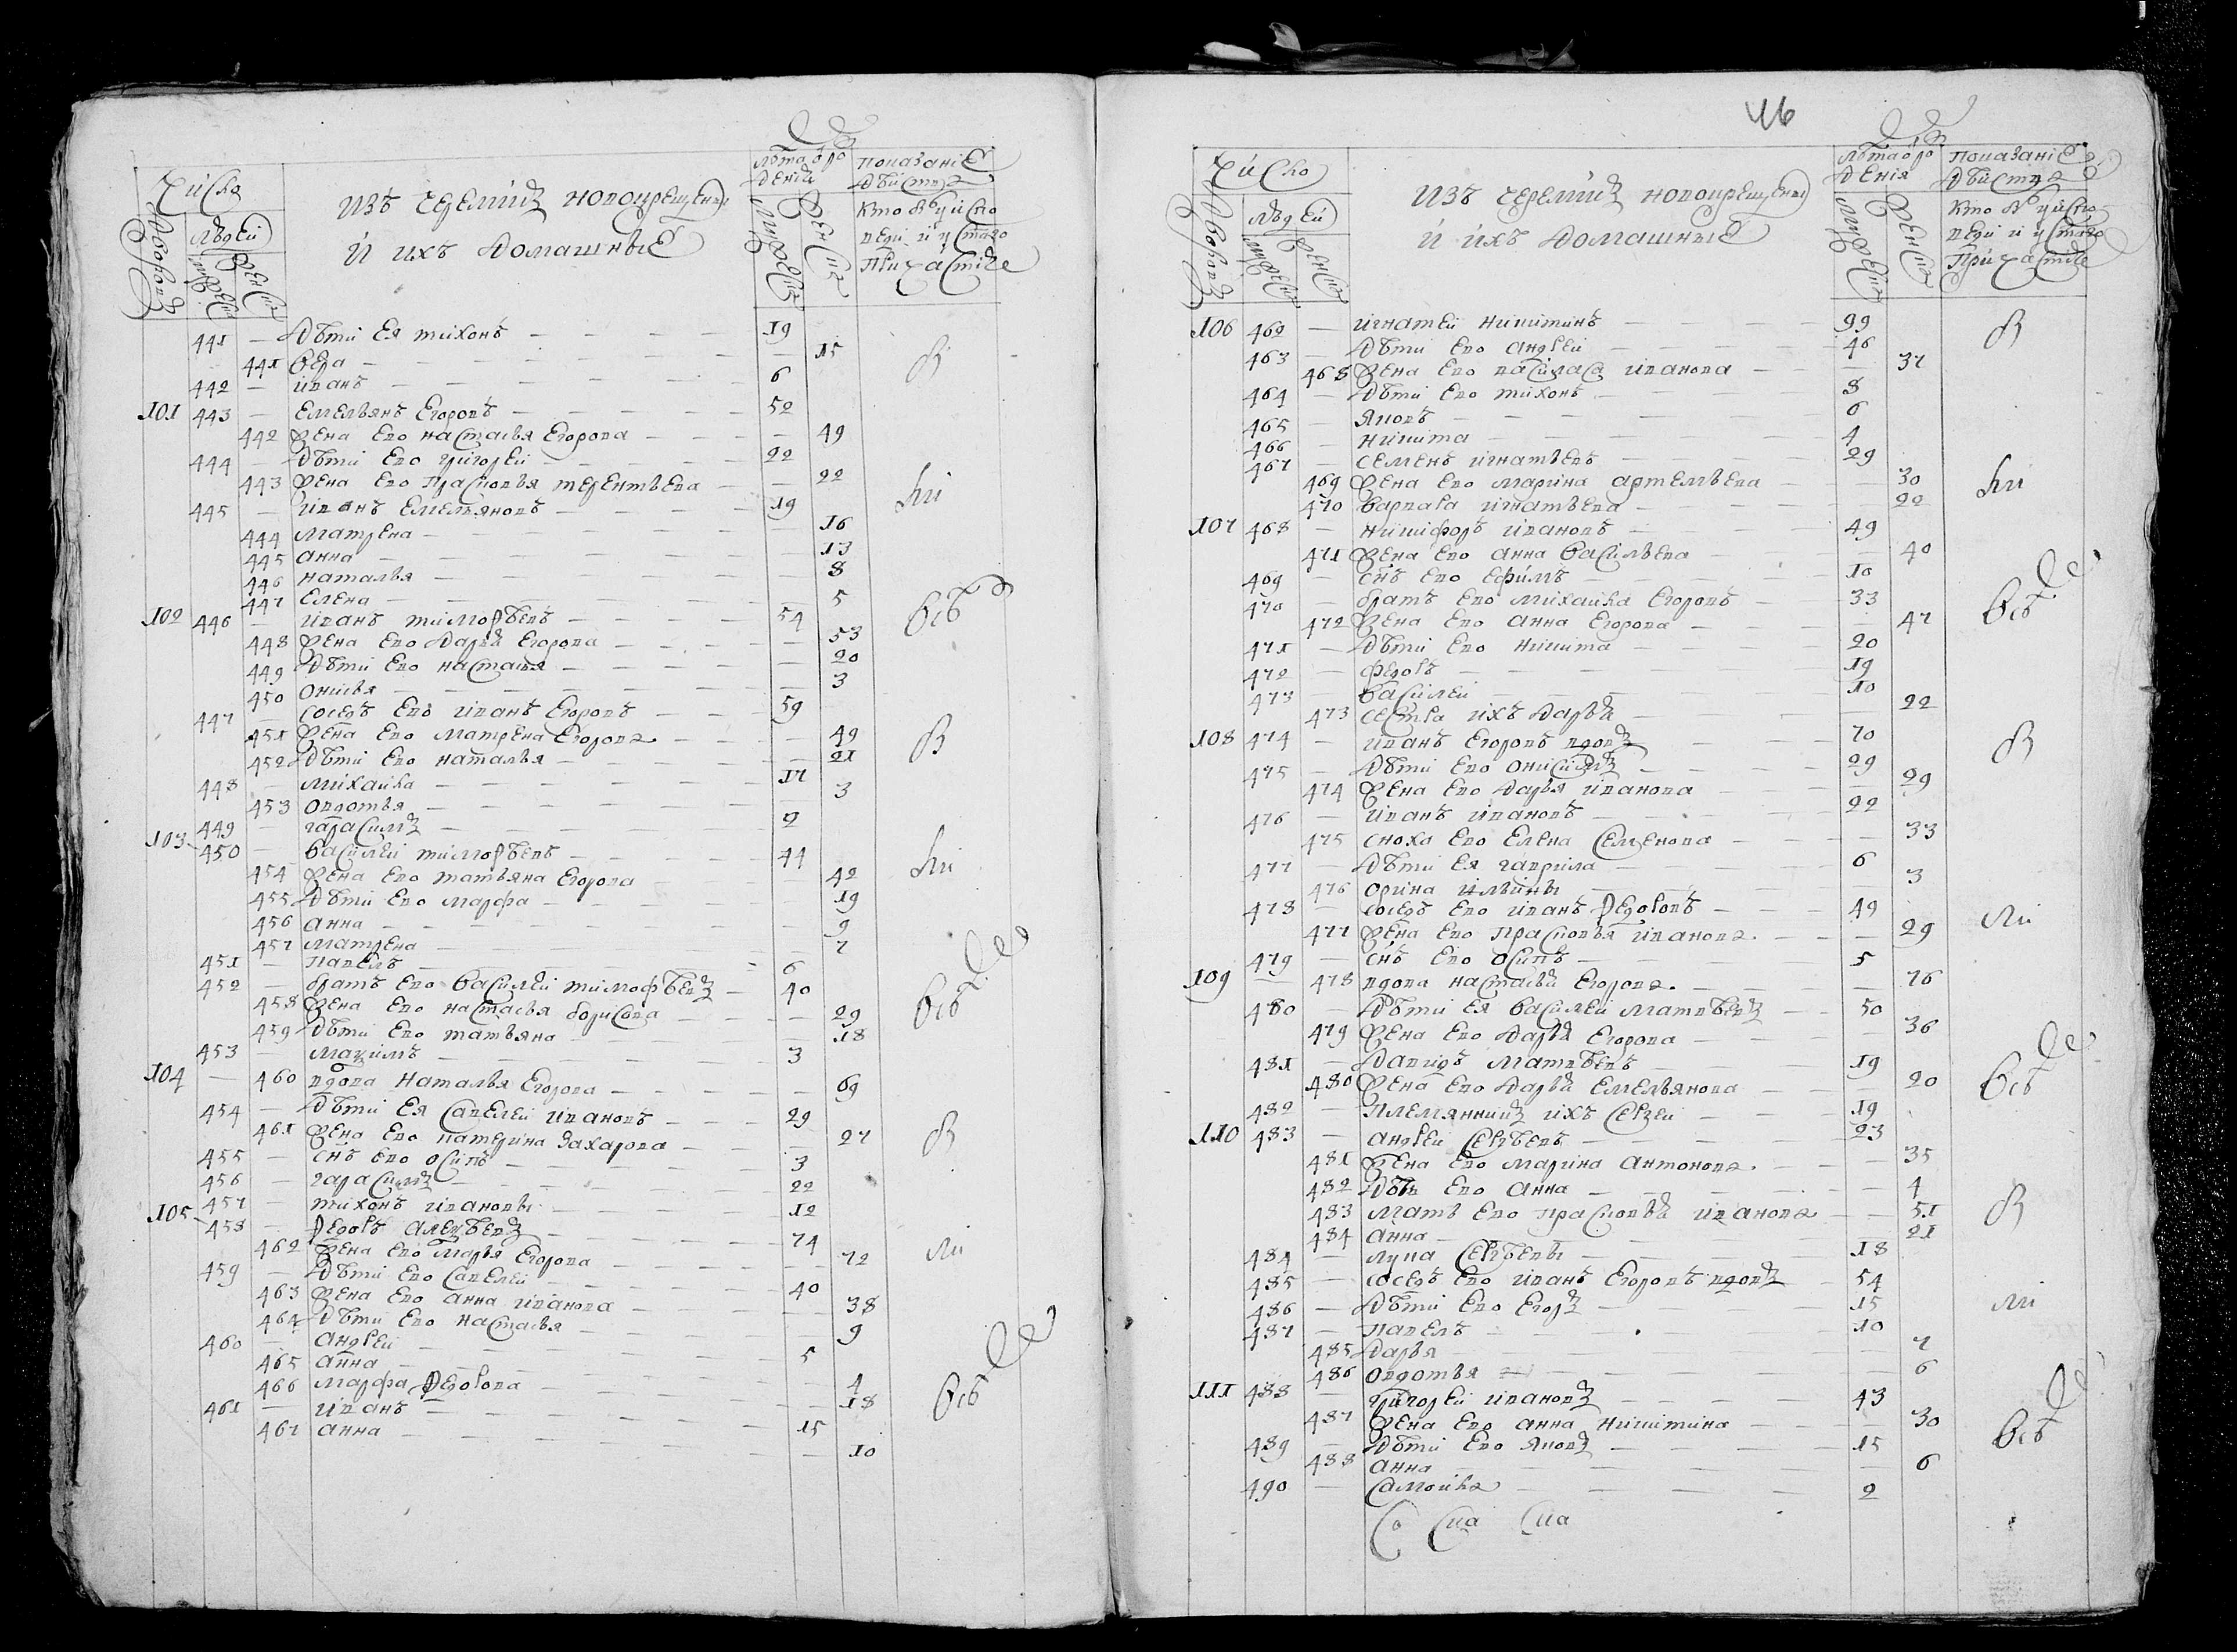 Число
Людей
Дворовъ
Мужеска
Женска
Изъ черемисъ новокрещены
и ихъ домашные
Лѣта рождения
Мужеска
Женска
Показание действа
Кто въ числе
веди и у стаго
Причастіе
441 — Дѣти ея тихонъ — 19
441 вера — 15
442 — иванъ — 6
101 443 — емельянъ егоровъ — 52
442 жена ево настасья егорова — 49
444 — дѣти ево григорей — 22
443 жена ево прасковья терентьева — 22
445 — иванъ емельяновъ — 19
444 матрена — 16
445 анна — 13
446 наталья — 8
447 елена — 5
102 446 — иванъ тимофѣевъ — 54
448 жена ево дарья егорова — 53
449 дѣти ево настасья — 20
450 онисья — 3
447 — соседъ ево иванъ егоровъ — 59
451 жена ево матрена егорова — 49
452 дѣти ево наталья — 21
448 — михаила — 17
453 овдотья — 3
449 — гарасимъ — 2
103 450 — василей тимофѣевъ — 44
454 жена ево татьяна егорова — 42
455 дѣти ево марфа — 19
456 анна — 9
457 матрена — 7
451 — павелъ — 6
452 — братъ ево василей тимофѣевъ — 40
458 жена ево настасья борисова — 29
459 дѣти ево татьяна — 18
453 — макимъ — 3
104 — 460 вдова наталья егорова — 69
454 — дѣти ея савелей ивановъ — 29
461 жена ево катерина захарова — 27
455 — снъ ево осипъ — 3
456 — гарасимъ — 22
457 — тихонъ ивановы — 12
105 458 — федотъ алеѣевъ — 74
462 жена ево марья егорова — 72
459 — дѣти ево савелей — 40
463 жена ево анна иванова — 38
464 дѣти ево настасья — 9
460 — андрей — 5
465 анна — 4
466 марфа федотова — 18
461 — иванъ — 15
467 анна — 10
46
Число
Людей
Дворовъ
Мужеска
Женска
Изъ черемисъ новокрещены
и ихъ домашные
Лѣта рождения
Мужеска
Женска
Показание действа
Кто въ числе
веди и у стаго
Причастіе
106 462 — игнатей никитинъ — 99
463 — дѣти ево андрей — 46
468 жена ево василаса иванова — 37
464 — дѣти ево тихонъ — 8
465 — яковъ — 6
466 — никита — 4
467 — семенъ игнатьевъ — 29
469 жена ево марина артемьева — 30
470 варвара игнатьева — 22
107 468 — никифоръ ивановъ — 49
471 жена ево анна васильева — 40
469 — снъ ево ефимъ — 10
470 — братъ ево михаила егоровъ — 33
472 жена ево анна егорова — 47
471 — дѣти ево никита — 20
472 — федотъ — 19
473 — василей — 10
473 сестра ихъ дарья — 22
108 474 — иванъ егоровъ вдовъ — 70
475 — дѣти ево онисимъ — 29
474 жена ево дарья иванова — 29
476 — иванъ ивановъ — 22
475 сноха ево елена семенова — 33
477 — дѣти ея гаврила — 6
476 орина ильины — 3
478 — соседъ ево иванъ федотовъ — 49
477 жена ево прасковья иванова — 29
479 — снъ ево осипъ — 5
109 — 478 вдова настасья егорова — 76
480 — дѣти ея василей матвѣевъ — 50
479 жена ево дарья егорова — 36
481 — давидъ матвѣевъ — 19
480 жена ево дарья емельянова — 20
482 — племянникъ ихъ сергей — 19
110 483 — андрей сергѣевъ — 23
481 жена ево марина антонова — 35
482 дочь ево анна — 4
483 мать ево прасковья иванова — 51
484 анна — 21
484 — лука сергѣевы — 18
485 — соседъ ево иванъ егоровъ вдовъ — 54
486 — дѣти ево егоръ — 15
487 — павелъ — 10
485 дарья — 7
486 овдотья — 6
111 488 — григорей ивановъ — 43
487 жена ево анна никитина — 30
489 — дѣти ево яковъ — 15
488 анна — 6
490 — самойла — 2